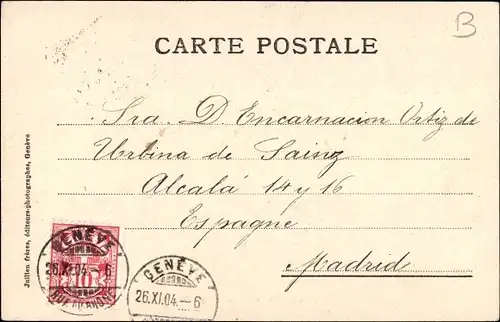 B
CARTE POSTALE
Sra. D Encarnacion Ortiz de
Urbina de Sainz
Alcalá 14 y 16
Espagne
Madrid
Jullien frères, éditeurs-photographes, Genève
GENÈVE
26.XI.04.-6
10
GENÈVE
26.XI.04.-6